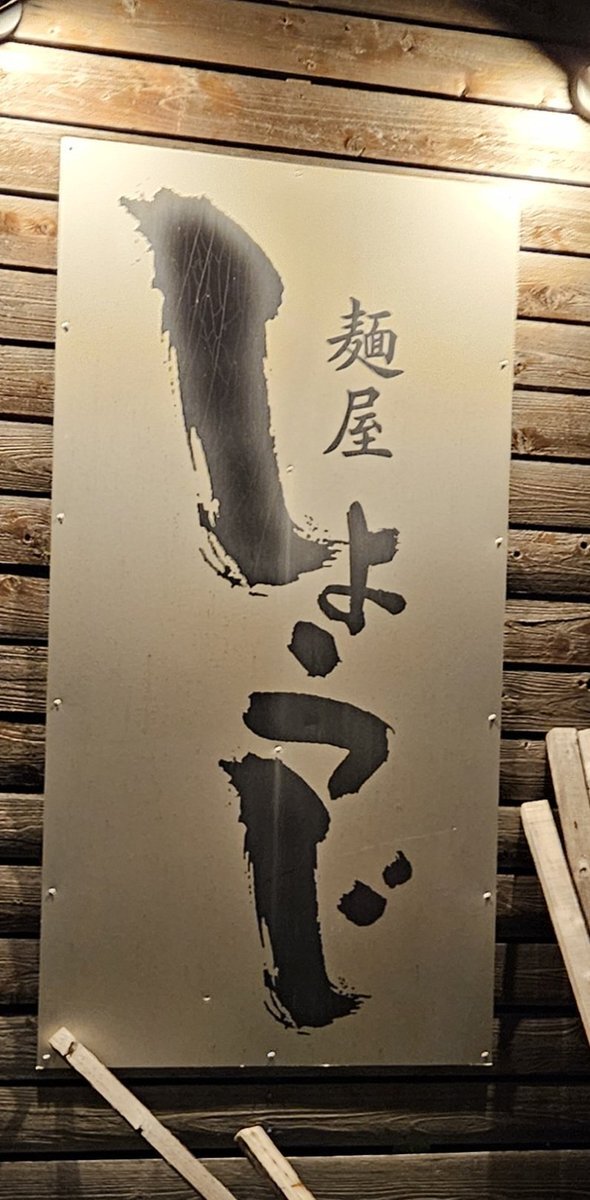 麺屋
しょうじ